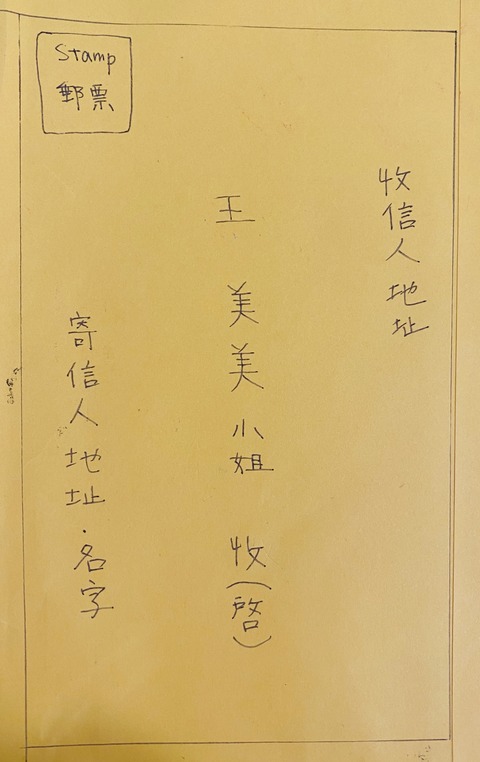 收信人地址
王 美美小姐 收(啓)
Stamp
郵票
寄信人地址.名字